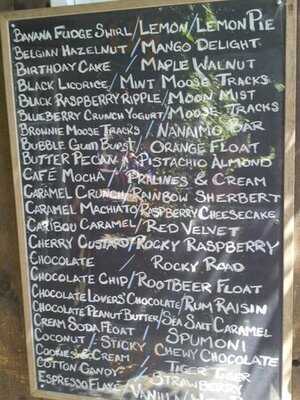 BANANA FUDGE SWIRL/LEMON/LEMON PIE
BELGIAN HAZELNUT / MANGO DELIGHT
BIRTHDAY CAKE / MAPLE WALNUT
BLACK LICORICE / MINT MOOSE TRACKS
BLACK RASPBERRY RIPPLE/MOON MIST
BLUEBERRY CRUNCH YOGURT/MOOSE TRACKS
BROWNIE MOOSE TRACKS / NANAIMO BAR
BUBBLE GUM BURST / ORANGE FLOAT
BUTTER PECAN / PISTACHIO ALMOND
CAFÉ MOCHA / PRALINES & CREAM
CARAMEL CRUNCH/RAINBOW SHERBERT
CARAMEL MACHIATO/RASPBERRY CHEESECAKE
CARIBOU CARAMEL/RED VELVET
CHERRY CUSTARD/ROCKY RASPBERRY
CHOCOLATE / ROCKY ROAD
CHOCOLATE CHIP/ROOTBEER FLOAT
CHOCOLATE LOVERS' CHOCOLATE/RUM RAISIN
CHOCOLATE PEANUT BUTTER/SEA SALT CARAMEL
CREAM SODA FLOAT / SPUMONI
COCONUT / STICKY CHEWY CHOCOLATE
COOKIES & CREAM / TIGER TIGER
COTTON CANDY / STRAWBERRY
ESPRESSO FLAKE / VANILLA